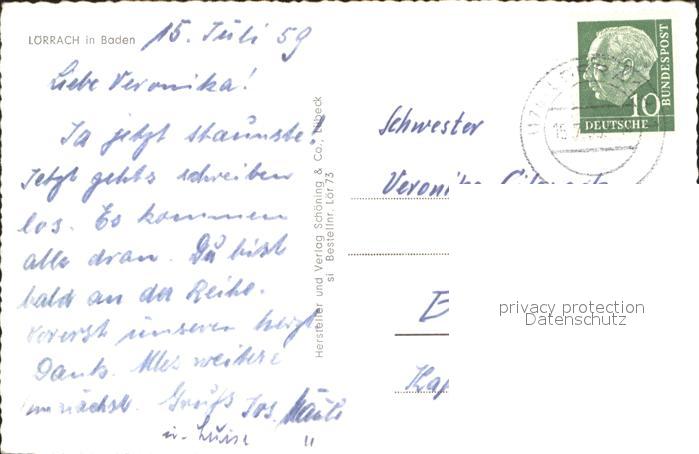 LÖRRACH in Baden
15. Juli 59
Liebe Veronika!
Ja jetzt staunste!
Jetzt gehts schreiben
los. Es kommen
alle dran. Du bist
bald an der Reihe.
Vorerst unseren herzl.
Dank. Alles weitere
demnächst. Gruß Jos.
u. Luise "
Hersteller und Verlag Schöning & Co., Lübeck
si Bestellnr. Lör 73
DEUTSCHE
BUNDESPOST
10
Schwester
Veronika
privacy protection
Datenschutz